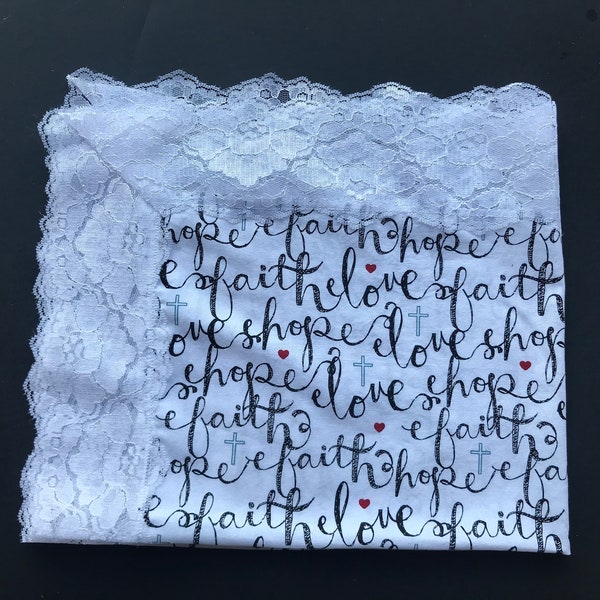 hope faith hope fa
faith love faith
love hope love hope
hope love hope
faith faith
hope faith hope fa
faith love faith